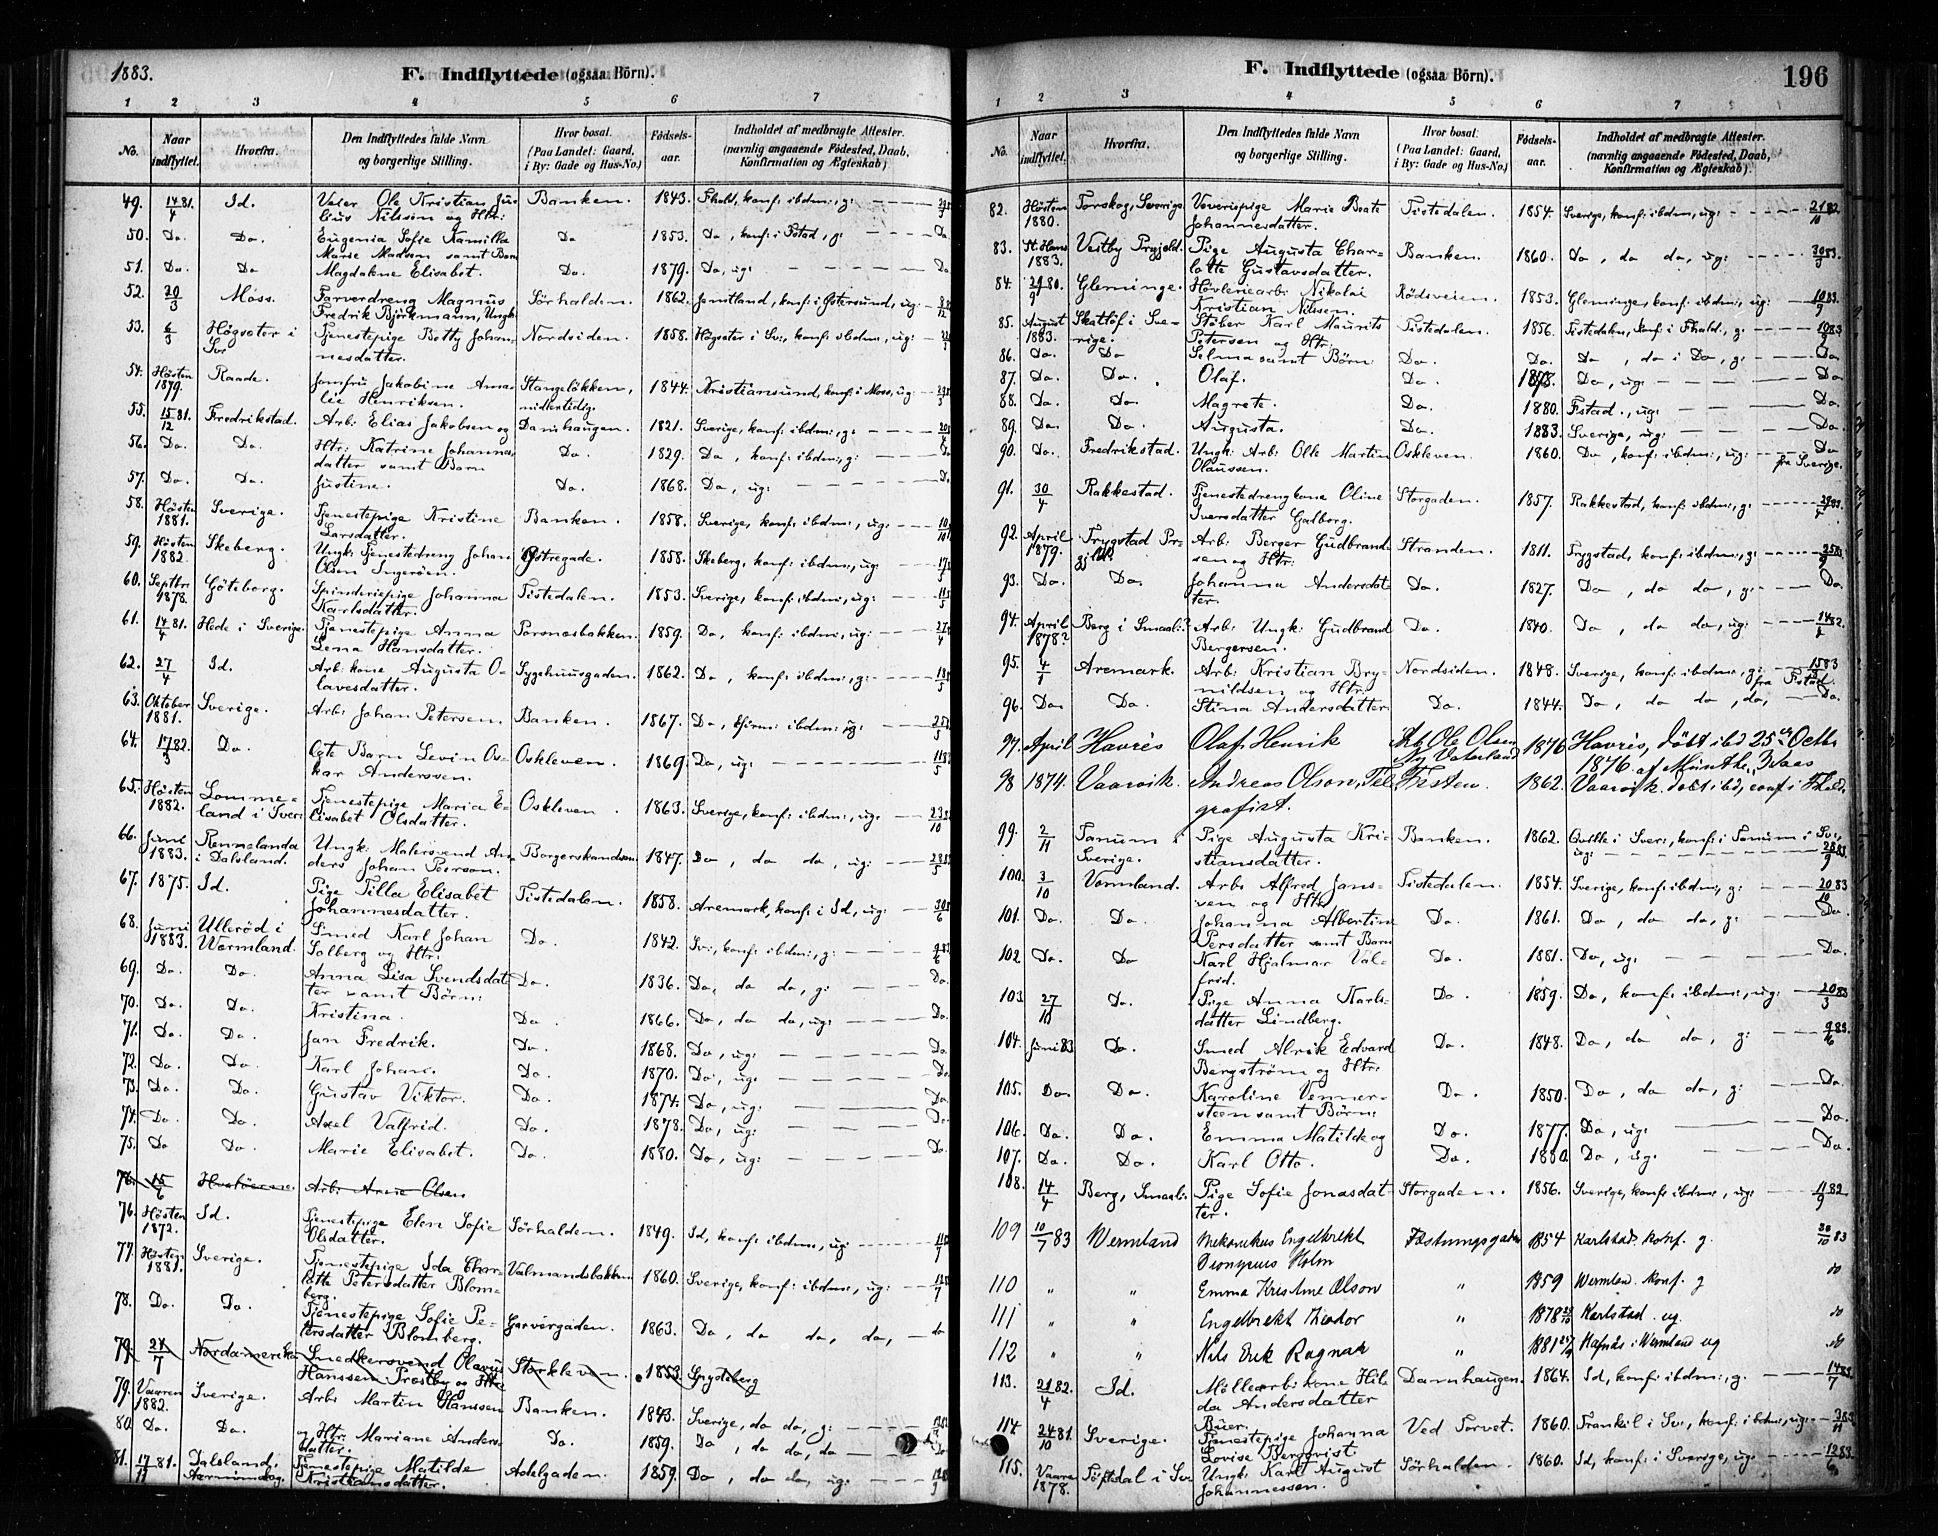 1883.
F. Indflyttede (ogsaa Börn).
1 2 3 4 5 6 7
No. Naar indflyttet. Hvorfra. Den Indflyttedes fulde Navn og borgerlige Stilling. Hvor bosat. (Paa Landet: Gaard, i By: Gade og Hus-No.) Fødsels-aar. Indholdet af medbragte Attester. (navnlig angaaende Fødested, Daab, Konfirmation og Ægteskab)
49. 14/4 81. Id. Ole Kristian Julius Nilssen og Htr: Banken. 1843. Fhald, konf: ibdm:, g:
50. Do. Do. Eugenia Sofie Kamilla Marie Madsen samt Barn Do 1853. Do, konf: i Fstad, g: Do
51. Do. Do Magdalene Elisabet. Do. 1879. Do, ug: Do
52. 20/3 Moss. Farverdreng Magnus Fredrik Bjørkmann, Ungk: Sörhalden. 1862. Jemtland, konf: i Østersund, ug:
53. 6/3 Högsäter i Sv: Tjenestepige Betty Johannesdatter. Nordsiden. 1858. Högsäter i Sv:, konf: ibdm:, ug:
54. Høsten 1879. Raade. Jomfru Jakobine Amalie Henriksen. Stangeløkken, midlertidig. 1844. Kristiansund, konf: i Moss, ug:
55. 15/12 81. Fredrikstad. Arb: Elias Jakobsen og Damhaugen. 1821. Sverige, konf: ibdm:, g:
56. Do. Do. Htr: Katrine Johannesdatter samt Barn Do. 1829. Do, konf: ibdm:, g: Do
57. Do. Do. Justine. Do. 1868. Do, ug: Do
58. Høsten 1881. Sverige. Tjenestepige Kristine Larsdatter. Banken. 1858. Sverige, konf: ibdm:, ug:
59. Høsten 1882. Skeberg. Ungk: Tjenestedreng Johan Olsen Ingerøen. Østregade. 1858. Skeberg, konf: ibdm:, ug:
60. Septbr: 1878. Göteborg. Spinderipige Johanna Karlsdatter. Tistedalen. 1853. Sverige, konf: ibdm:, ug:
61. 14/4 81. Hede i Sverige. Tjenestepige Anna Lena Hansdatter. 1859. Do, konf: ibdm:, ug:
62. 27/4 Id. Arb: kone Augusta Olavesdatter. Sygehuusgaden. 1862. Do, konf: ibdm:, g:
63. Oktober 1881. Sverige. Arb: Johan Petersen. Banken. 1867. Do, ibdm: ug:
64. 17/3 82. Do. Ægte Barn Levin Oskar Anderssen. Oskleven. 1869. Do, ug:
65. Høsten 1882. Lommeland i Sver: Tjenestepige Maria Elisabet Olsdatter. Oskleven. 1863. Sverige, konf: ibdm:, ug:
66. Juni 1883. Rennelanda i Dalsland. Ungk: Malersvend Anders Johan Peerson. Borgerskandsen. 1847. Do, do do, ug:
67. 1875. Id. Pige Tilla Elisabet Johannesdatter. Tistedalen. 1858. Aremark, konf: i Id, ug:
68. Juni 1883. Ulleröd i Wermland. Smed Karl Johan Solberg og Htr: Do. 1842. Sv:, konf: ibdm:, g:
69. Do. Do. Anna Lisa Svendsdatter samt Børn: Do. 1836. Do, do do, g: Do.
70. Do. Do. Kristina. Do. 1866. Do, do do, ug: Do.
71. Do. Do. Jan Fredrik. Do. 1868. Do, ug: Do.
72. Do. Do. Karl Johan. Do. 1870. Do, ug: Do.
73. Do. Do. Gustav Viktor. Do. 1874. Do, ug: Do.
74. Do. Do. Axel Valfrid. Do. 1878. Do, ug: Do.
75. Do Do. Marie Elisabet. Do. 1880. Do, ug: Do.
76. 15/6 Arb: Arne Olsen
76. Høsten 1872. Id. Tjenestepige Elen Sofie Olsdatter. Sörhalden. 1849. Id, konf: ibdm:, ug:
77. Høsten 1881. Sverige. Tjenestepige Ida Charlotte Petersdatter Blomberg. Valmandsbakken 1860. Sverige, konf: ibdm:, ug:
78. Do. Do. Tjenestepige Sofie Petersdatter Blomberg. Garvergaden. 1863. Do, do do, do, do
79. 24/7 Nordamerika Smedkersvend Olavus Hanssen Prestby og Htr Storkleven. 1853. Spydeberg
79. Vaaren 1882. Sverige. Arb: Martin Hanssen Banken. 1843. Sverige, do do, g:
80. Do. Do. og Htr: Mariane Andersdatter. Do. 1859. Do, do do, do Do
81. 17/11 81. Dalsland, Tjenestepige Matilde Kristiansdatter. Adelgaden. 1859. Do, do do, ug:
F. Indflyttede (ogsaa Börn). 196
1 2 3 4 5 6 7
No. Naar indflyttet. Hvorfra. Den Indflyttedes fulde Navn og borgerlige Stilling. Hvor bosat. (Paa Landet: Gaard, i By: Gade og Hus-No.) Fødsels-aar. Indholdet af medbragte Attester. (navnlig angaaende Fødested, Daab, Konfirmation og Ægteskab).
82. Høsten 1880. Torskog, Sverige Væveripige Marie Beate Johannesdatter. Tistedalen. 1854. Sverige, konf: ibdm:, ug: 21/10 82
83. St. Hans 1883. Vestby Prgjeld. Pige Augusta Charlotte Gustavsdatter. Banken. 1860. Do, do do, ug: 30/9 83.
84. 29/9 80. Glemminge. Høvleriearb: Nikolai Kristian Nilsen. Rödsveien. 1853. Glemminge, konf: ibdm:, ug: 10/9 83.
85. August 1883. Skatlöf i Sverige. Støber Karl Maurits Petersen og Htr: Tistedalen. 1856. Tistedalen, konf: i Fhald., g:
86. Do. Do Selma samt Børn: Do. Do. Do, do i Do, g: Do.
87. Do. Do. Olaf. Do. 1878. Do, ug: Do
88. Do. Do. Magrete. Do. 1880. Fstad., ug: Do.
89. Do. Do. Augusta. Do. 1883. Sverige, ug: Do.
90. Do. Fredrikstad. Ungk: Arb: Olle Martin Olaussen. Oskleven. 1860. Do, konf: ibdm:, ug: Do fra Sverige.
91. 30/4 Rakkestad. Tjenestedrengkone Oline Iversdatter Galborg. Storgaden. 1857. Rakkestad, konf: ibdm:, g:
92. April 1879. Trygstad Prgjld. Arb: Berger Gudbrandsen og Htr: Stranden. 1811. Trygstad, konf: ibdm:, g:
93. Do. Do. Johanna Andersdatter. Do. 1827. Do, do do, g: Do.
94. April 1878? Berg i Smaal:? Arb: Ungk: Gudbrand Bergersen. Do. 1840. Do, do do, ug:
95. 4/1 Aremark. Arb: Kristian Brynildsen og Htr: Nordsiden. 1848. Sverige, konf: ibdm:, g: fra Fstad.
96. Do. Do. Stina Andersdatter Do. 1844. Do, do do, do, Do.
97. April Havrés Olaf Henrik Arb. Ole Olsen Ny Vaterland 1876 Havrés, døbt ibd 25de Octb: 1876 af
98 1874. Vaarvik. Andreas Olsen, Telegrafist. Tisten. 1862. Vaarvik. døbt ibd, conf. i Fhald.
99. 2/11 Tanum i Sverige. Pige Augusta Kristiansdatter. Banken. 1862. Qville i Sver:, konf: i Tanum i Sv:, ug: 28/9 83.
100. 3/10 Vermland. Arb: Alfred Jansen og Htr: Tistedalen. 1854. Sverige, konf: ibdm:, g: 20/10 83
101. Do. Do. Johanna Albertine Persdatter samt Barn Do. 1861. Do, do do, g: Do.
102 Do. Do Karl Hjalmar Valfrid. Do. 1881. Do, ug: Do.
103 27/10 Do. Pige Anna Karlsdatter Lindberg. Do. 1859. Do, konf: ibdm:, ug: 20/3 83
104. Juni 83 Do. Smed Alrik Edvard Bergström og Htr: Do. 1848. Do, do do, g: 9/6 83.
105. Do. Do. Karoline Vennersteen samt Børn: Do. 1850. Do, do do, g: Do.
106. Do. Do. Emma Matilde og Do. 1877. Do, ug: Do.
107. Do. Do. Karl Otto. Do. 1880. Do, ug: Do.
108. 14/4 Berg, Smaal: Pige Sofie Jonasdatter. Storgaden. 1856. Sverige, konf: ibdm:, ug: 11/9 82
109 10/7 83 Wermland Mekanikus Engelbrekt Dionysius Holm Fæstningsgaden 1854 Karlstad. konf. g. 30/10 83
110 " " Emma Kristine Olson " 1859 Wermlan. konf. g do
111 " " Engelbrekt Theodor " 1878 Karlstad. ug. do
112 " " Nils Erik Ragnar " 1881 i Wermland ug do
113. 21/4 82. Id. Møllearb: kone Hilda Andersdatter Büer. Damhaugen. 1864. Id, konf: ibdm:, g: 14/7 83.
114 24/10 81. Sverige. Tjenestepige Johanna Lovise Bergqvist. Ved Torvet. 1860. Frankil i Sv:, konf: ibdm:, ug:
115. Vaaren 1878. Töftdal i Sv: Ungk: Karl August Johannessen. Sörhalden. 1860. Id, konf: i Sverige, ug: